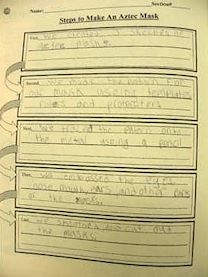 Name: Section#
Steps to Make An Aztec Mask
First, We created 3 sketches of
masks.
Second, We made the pattern for
our mask using templates
rulers and protractors
Next, We traced the pattern onto
the metal using a pencil
Then, We embossed the eyes,
nose, mouth, ears, and other parts
of the masks.
Last, We cut out
the masks.